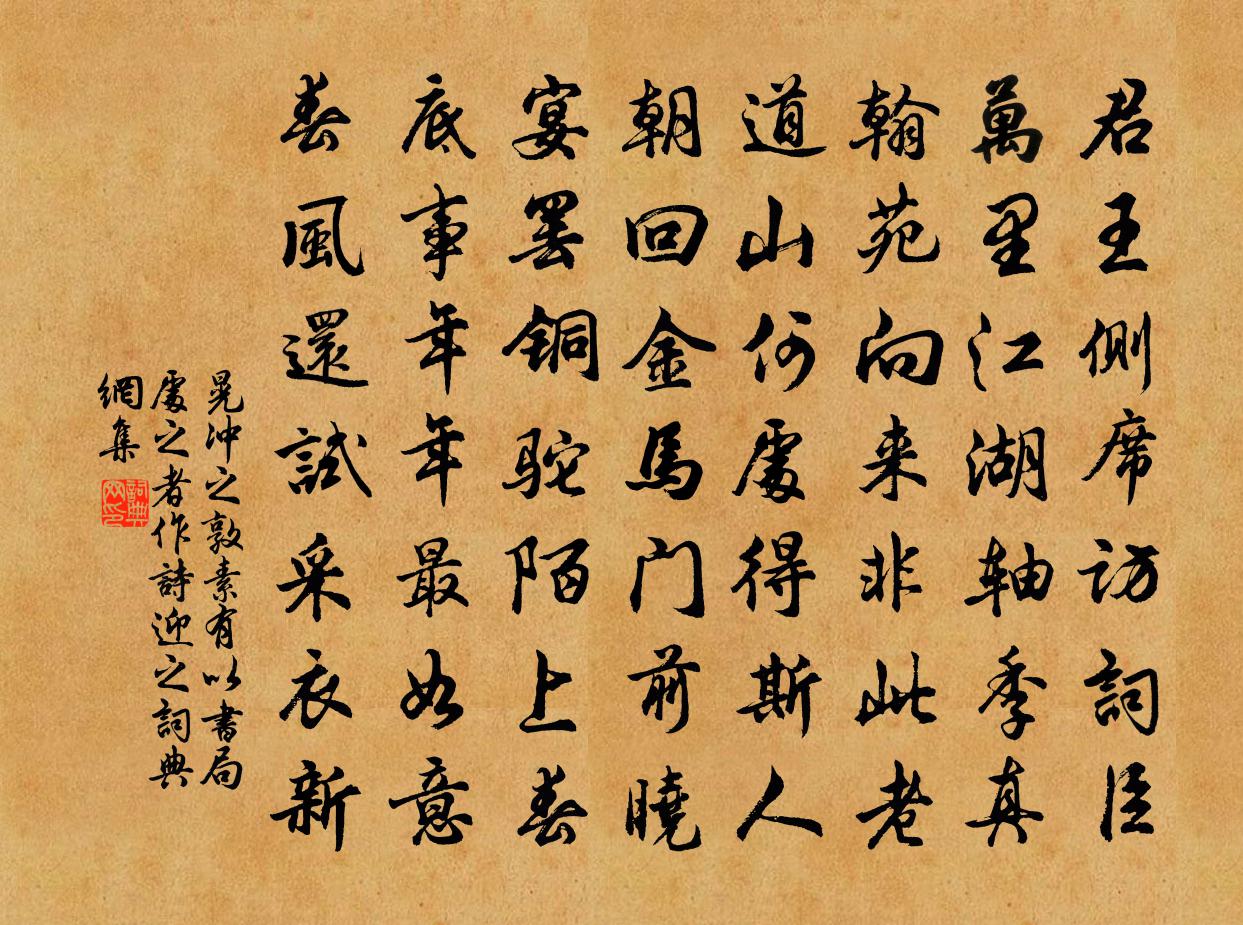 君王側席访詞臣
萬里江湖轴季真
翰苑向来非此老
道山何處得斯人
朝回金馬门前曉
宴罢铜驼陌上春
底事年年最如意
春風還試采衣新
晃冲之敦素有以書局
處之者作詩迎之詞典
網集
詞典網印